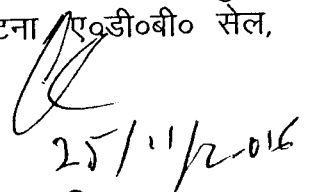 टना ए०डी०बी० सेल,
25/11/2016